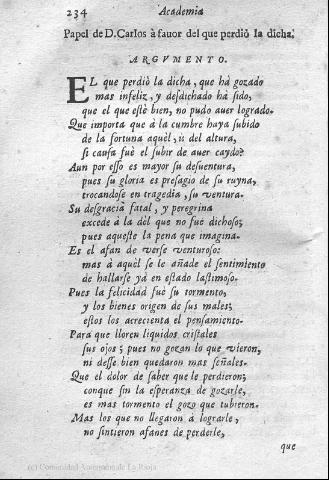 234 Academia
Papel de D. Carlos à fauor del que perdiò la dicha.
ARGVMENTO.
EL que perdiò la dicha, que hà gozado
mas infeliz, y desdichado hà sido,
que el que està bien, no pudo auer logrado.
Que importa que à la cumbre haya subido
de la fortuna aquèl, ù del altura,
si causa fuè el subir de auer caydo?
Aun por esso es mayor su desuentura,
pues su gloria es presagio de su ruyna,
trocandose en tragedia, su ventura.
Su desgracia fatal, y peregrina
excede à la del que no fuè dichoso;
pues aqueste la pena que imagina.
Es el afan de verse venturoso:
mas à aquèl se le añade el sentimiento
de hallarse yà en estado lastimoso.
Pues la felicidad fuè su tormento,
y los bienes origen de sus males;
estos los acrecienta el pensamiento.
Para que lloren liquidos cristales
sus ojos; pues no gozan lo que vieron,
ni desse bien quedaron mas señales.
Que el dolor de saber que le perdieron;
conque sin la esperanza de gozarle,
es mas tormento el gozo que tubieron.
Mas los que no llegaron à lograrle,
no sintieron afanes de perderle,
que
(c) Comunidad Autonoma de La Rioja